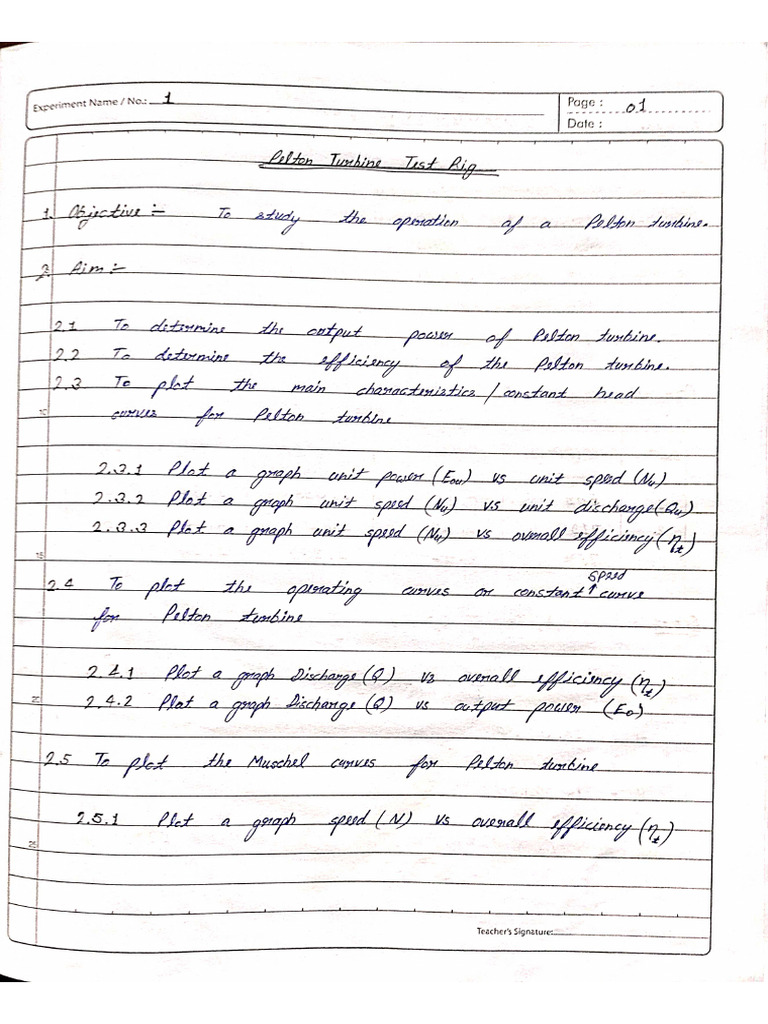 Experiment Name / No.: 1
Page : 01
Date :
Pelton Turbine Test Rig
1. Objective :- To study the operation of a Pelton turbine.
2. Aim :-
2.1 To determine the output power of Pelton turbine.
2.2 To determine the efficiency of the Pelton turbine.
2.3 To plot the main characteristics / constant head
10
curves for Pelton turbine
2.3.1 Plot a graph unit power (Eou) vs unit speed (Nu)
2.3.2 Plot a graph unit speed (Nu) vs unit discharge (Qu)
2.3.3 Plot a graph unit speed (Nu) vs overall efficiency (ηt)
15
speed
2.4 To plot the operating curves or constant ↑ curve
for Pelton turbine
2.4.1 Plot a graph Discharge (Q) vs overall efficiency (ηt)
20
2.4.2 Plot a graph Discharge (Q) vs output power (Eo)
2.5 To plot the Muschel curves for Pelton turbine
2.5.1 Plot a graph speed (N) vs overall efficiency (ηt)
25
Teacher's Signature: